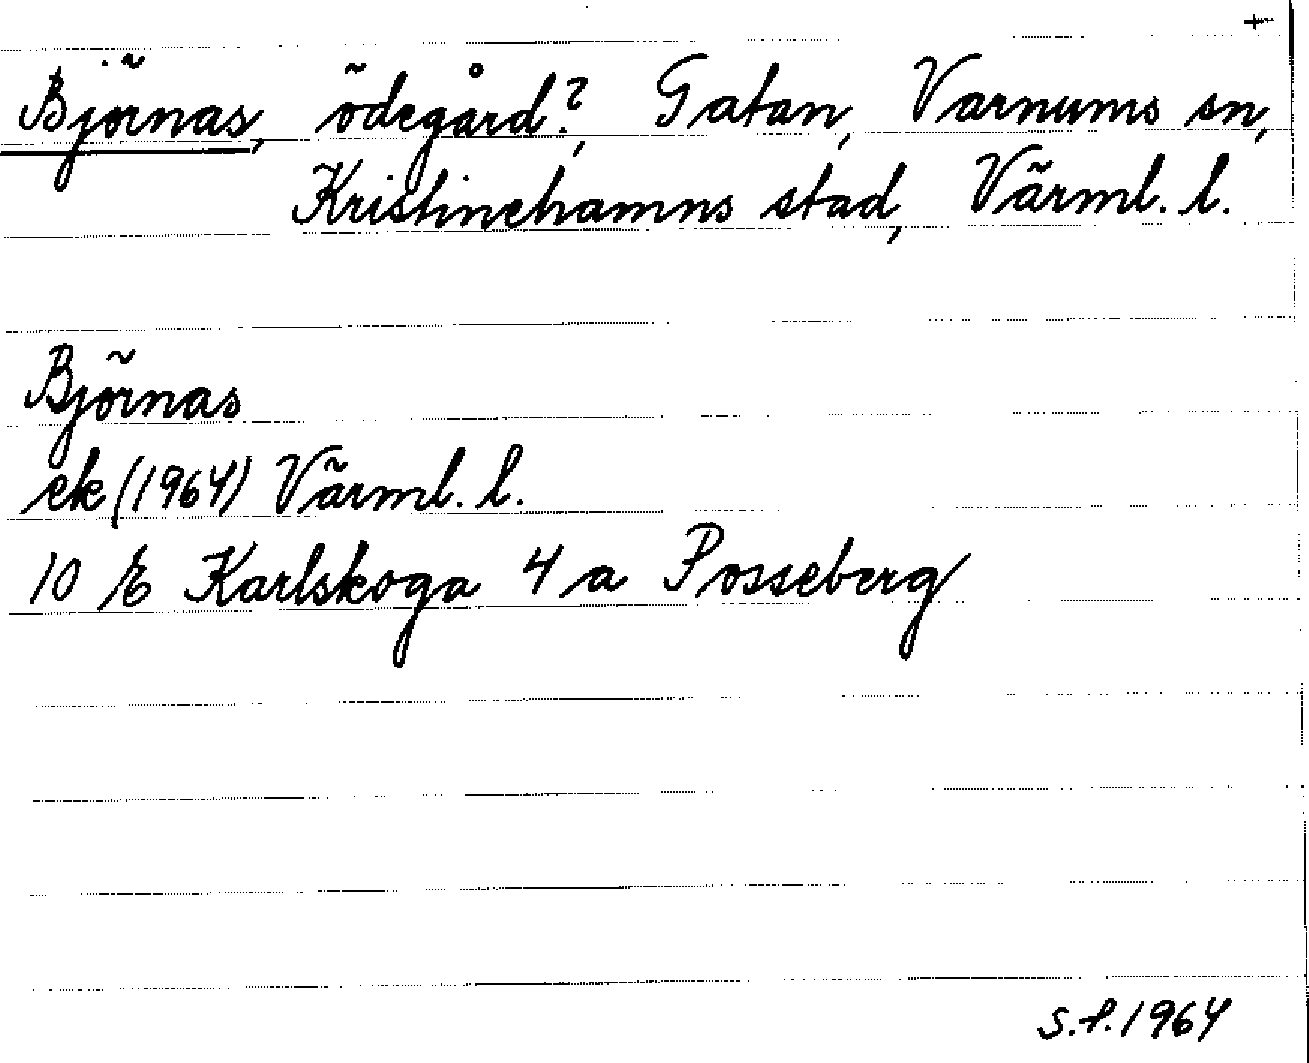 +
Björnas, ödegård?, Gatan, Varnums sn,
Kristinehamns stad, Värml. l.
Björnas
ek (1964) Värml. l.
10 E Karlskoga 4 a Posseberg
S.f. 1964